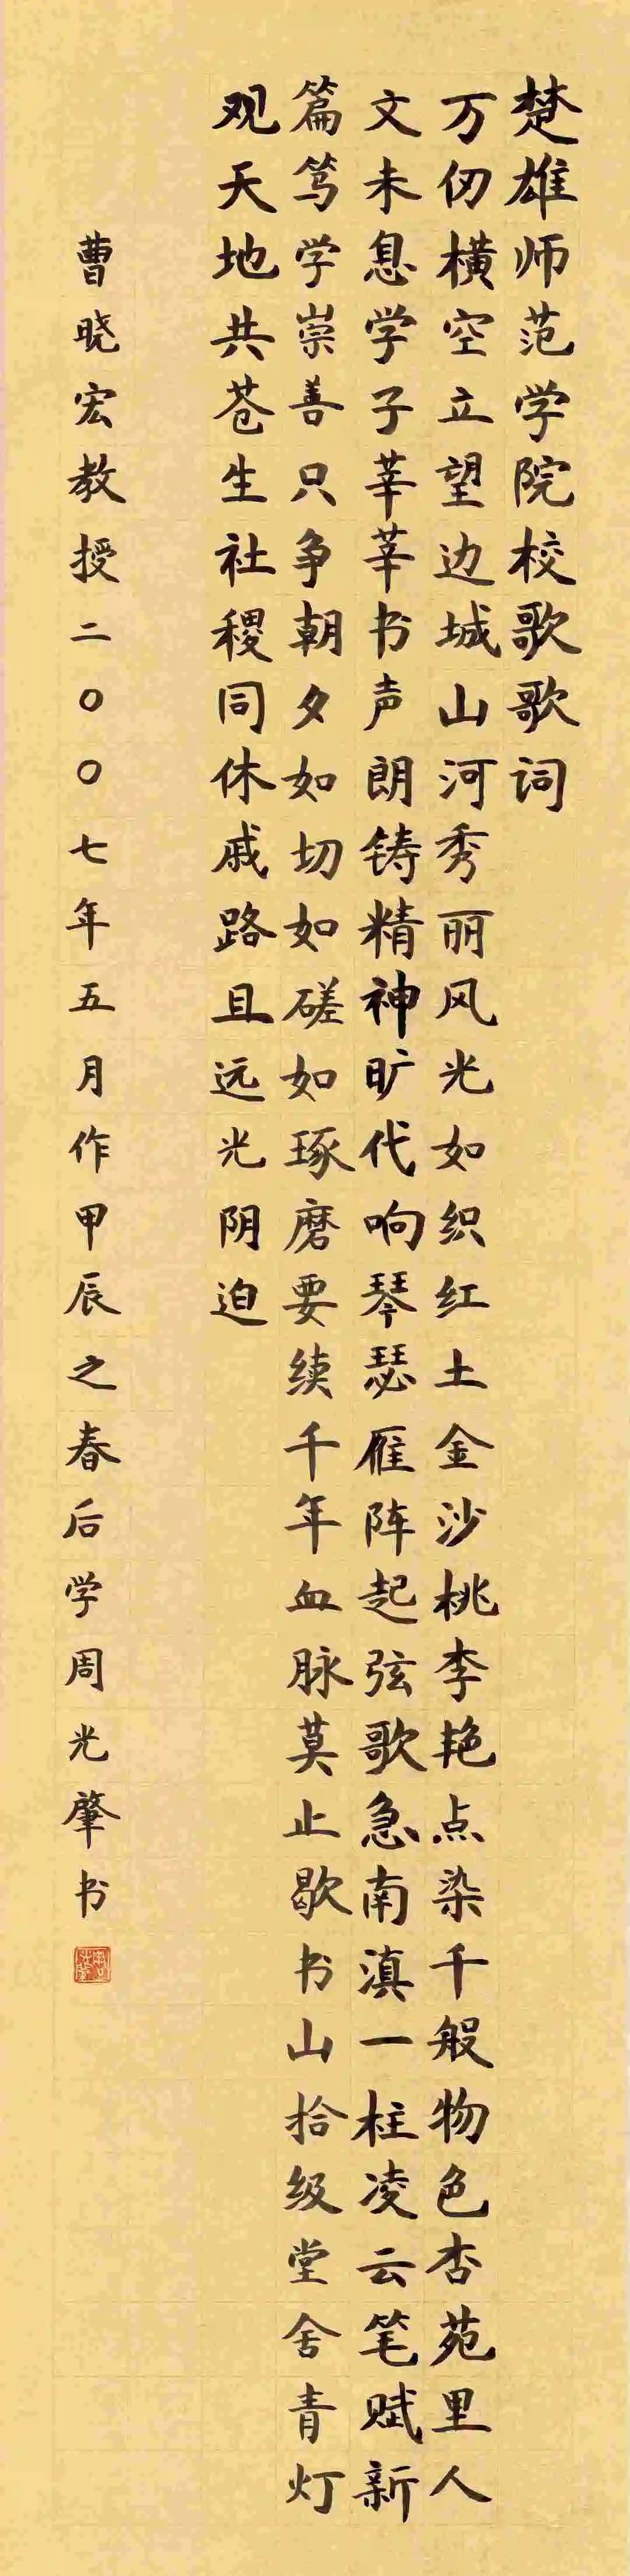 楚雄师范学院校歌歌词
万仞横空立望边城山河秀丽风光如织红土金沙桃李艳点染千般物色杏苑里人
文未息学子莘莘书声朗铸精神旷代响琴瑟雁阵起弦歌急南滇一柱凌云笔赋新
篇笃学崇善只争朝夕如切如磋如琢磨要续千年血脉莫止歇书山拾级堂舍青灯
观天地共苍生社稷同休戚路且远光阴迫
曹晓宏教授二〇〇七年五月作甲辰之春后学周光肇书